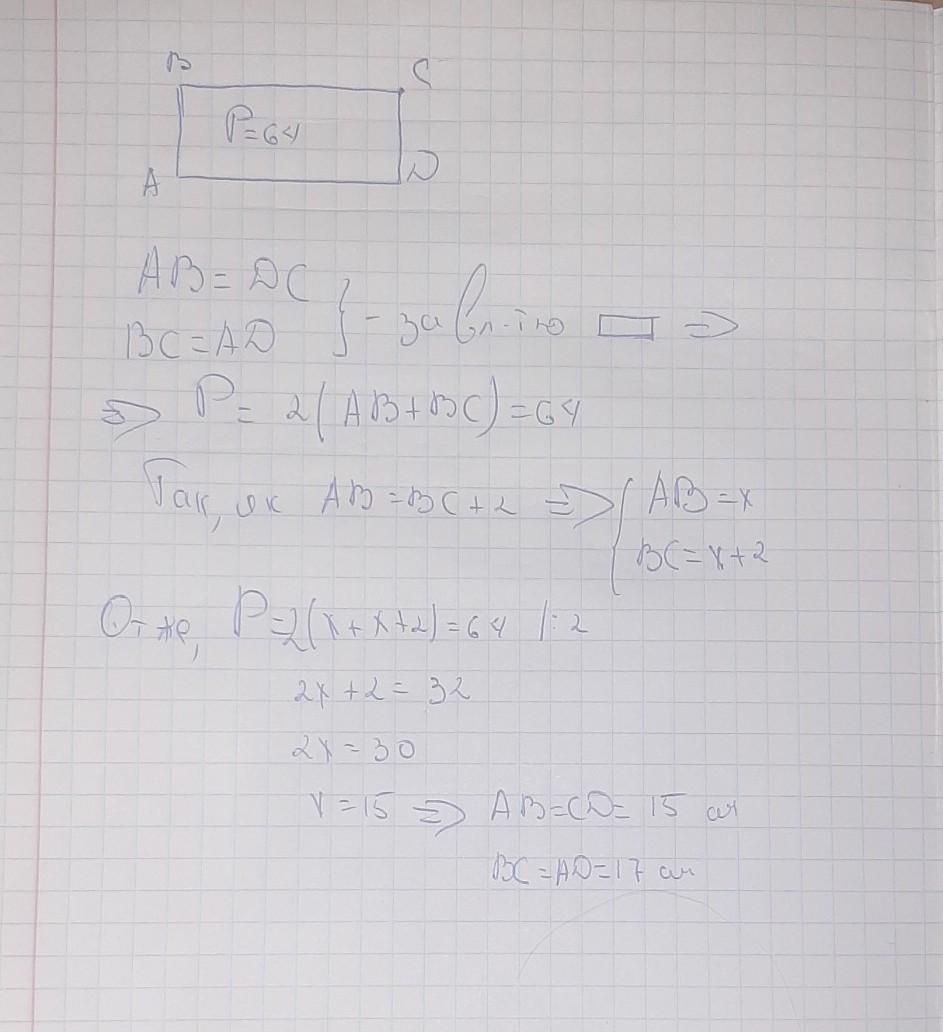 B
C
P=64
A
D
AB=DC
BC=AD } - за вл-тю ▭ ⇒
⇒ P=2(AB+BC)=64
Так, як AB=BC+2 ⇒ { AB=x
BC=x+2
От же, P=2(x+x+2)=64 /:2
2x+2=32
2x=30
x=15 ⇒ AB=CD=15 см
BC=AD=17 см